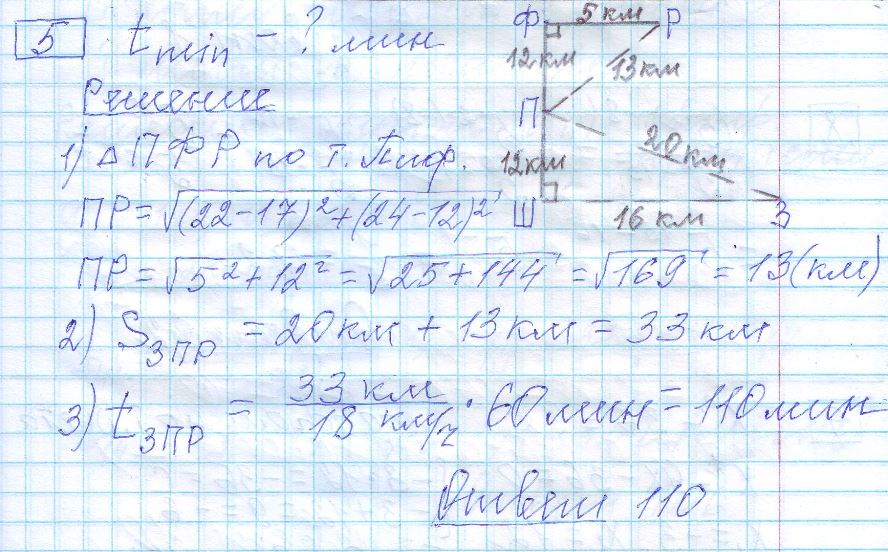 5 t min - ? мин
Решение
1) △ПФР по т. Пиф.
ПР = √(22-17)² + (24-12)²
ПР = √5² + 12² = √25 + 144 = √169 = 13 (км)
2) S ЗПР = 20 км + 13 км = 33 км
3) t ЗПР = 33 км / 18 км/ч · 60 мин = 110 мин
Ответ 110
Ф 5 км Р
12 км 13 км
П
12 км 20 км
Ш 16 км З